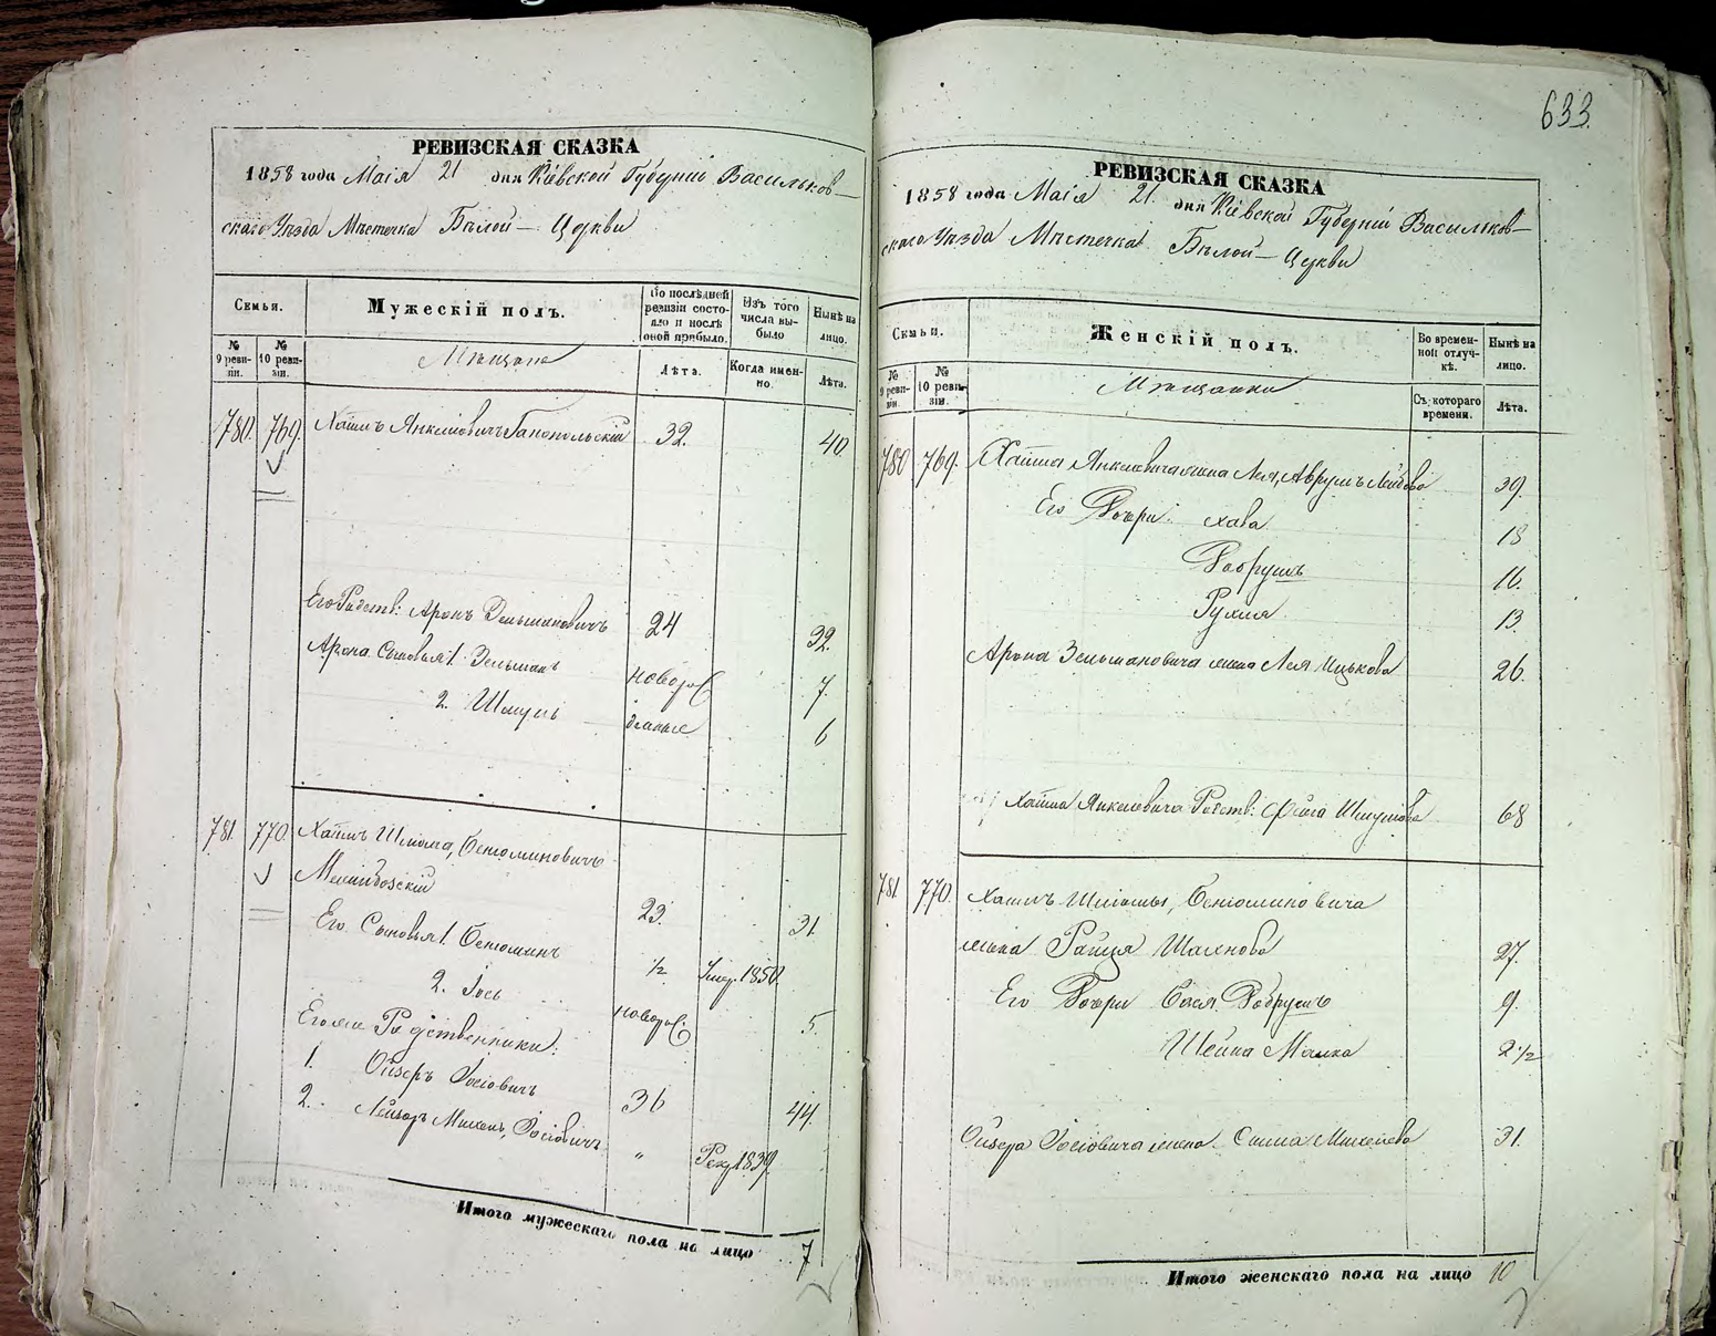 633.
РЕВИЗСКАЯ СКАЗКА
1858 года Маія 21 дня Кіевской Губерніи Васильков-
скаго Уѣзда Мѣстечка Бѣлой-Церкви
Семья.
Мужескій полъ.
По послѣдней ревизіи состояло и послѣ оной прибыло.
Изъ того числа выбыло
Нынѣ на лицо.
№ 9 ревизіи.
№ 10 ревизіи.
Мѣщане
Лѣта.
Когда именно.
Лѣта.
780. 769. Хаимъ Янкелевичъ 32. 40.
Его Родств: Аронъ Зельмановичъ 24 32.
Арона Сыновья 1. Зельманъ новорож 7.
2. Шмуль денные 6
781. 770. Хаимъ Шлиома, Бенюминовичъ
23. 31.
Его Сыновья 1. Бенюминъ ½ Умер. 1850.
2. Іось новорож: 5.
Его же Родственники:
1. Ойзеръ Іосіовичъ 36 44.
2. Лейзоръ Михель, Іосіовичъ " Рекр. 1839.
Итого мужескаго пола на лицо 7
РЕВИЗСКАЯ СКАЗКА
1858 года Маія 21. дня Кіевской Губерніи Васильков-
скаго Уѣзда Мѣстечка Бѣлой-Церкви
Семьи.
Женскій полъ.
Во временной отлучкѣ.
Нынѣ на лицо.
№ 9 ревизіи.
№ 10 ревизіи.
Мѣщанки
Съ котораго времени.
Лѣта.
780 769. Хаима Янкелевича жена Лея, Аврумъ Лейбова 39.
Его Дочери: Хава 18
Добрушъ 16.
Рухля 13.
Арона Зельмановича жена Лея Ицькова 26.
Хаима Янкелевича Родств: Фейга Шмулова 68
781. 770. Хаимъ Шліомы, Бенюминовича
жена Райця 27.
Его Дочери Бася Добрушъ 9.
Шейна Малка 2½
Ойзера Іосіовича жена Сима Михелева 31.
Итого женскаго пола на лицо 10